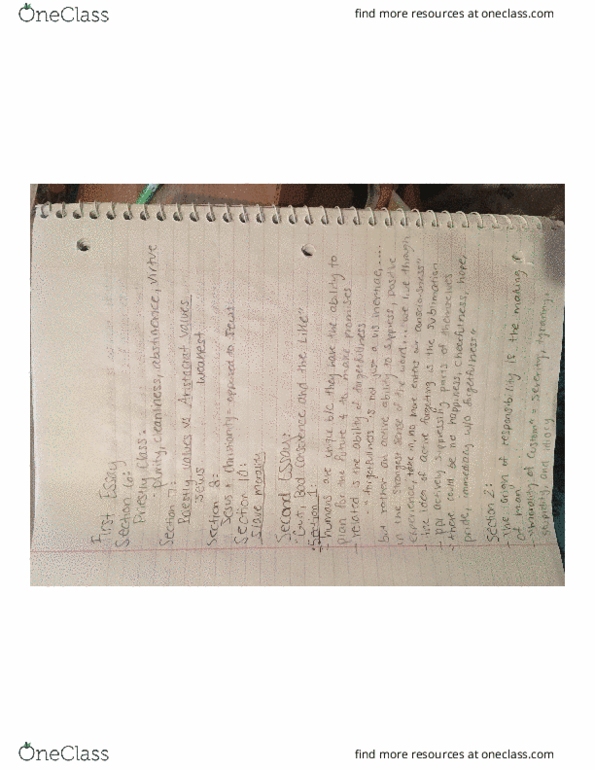 OneClass
find more resources at oneclass.com
First Essay
Section 6:
Priestly Class:
"purity, cleanliness, abstinence, virtue
Section 7:
Priestly values vs Aristocrat values
Jews weakest
Section 8:
Jesus & Christianity = opposed to Jews
Section 10:
Slave morality
Second Essay:
"Guilt, Bad conscience, and the Like"
Section 1:
- humans are unique b/c they have the ability to
plan for the future & to make promises
- related is the ability of forgetfullness
- "forgetfullness is not just a vis inertiae,...
but rather an active ability to suppress, positive
in the strongest sense of the word... we live through,
experience, take in, no more enters our consciousness"
- the idea of active forgetting is the sublimation
- ppl actively suppressing parts of themselves
- "there could be no happiness, cheerfulness, hope,
pride, immediacy w/o forgetfulness"
Section 2:
- "the origin of responsibility is the making
of man"
- "morality of custom" = severity, tyranny,
stupidity, and
OneClass
find more resources at oneclass.com